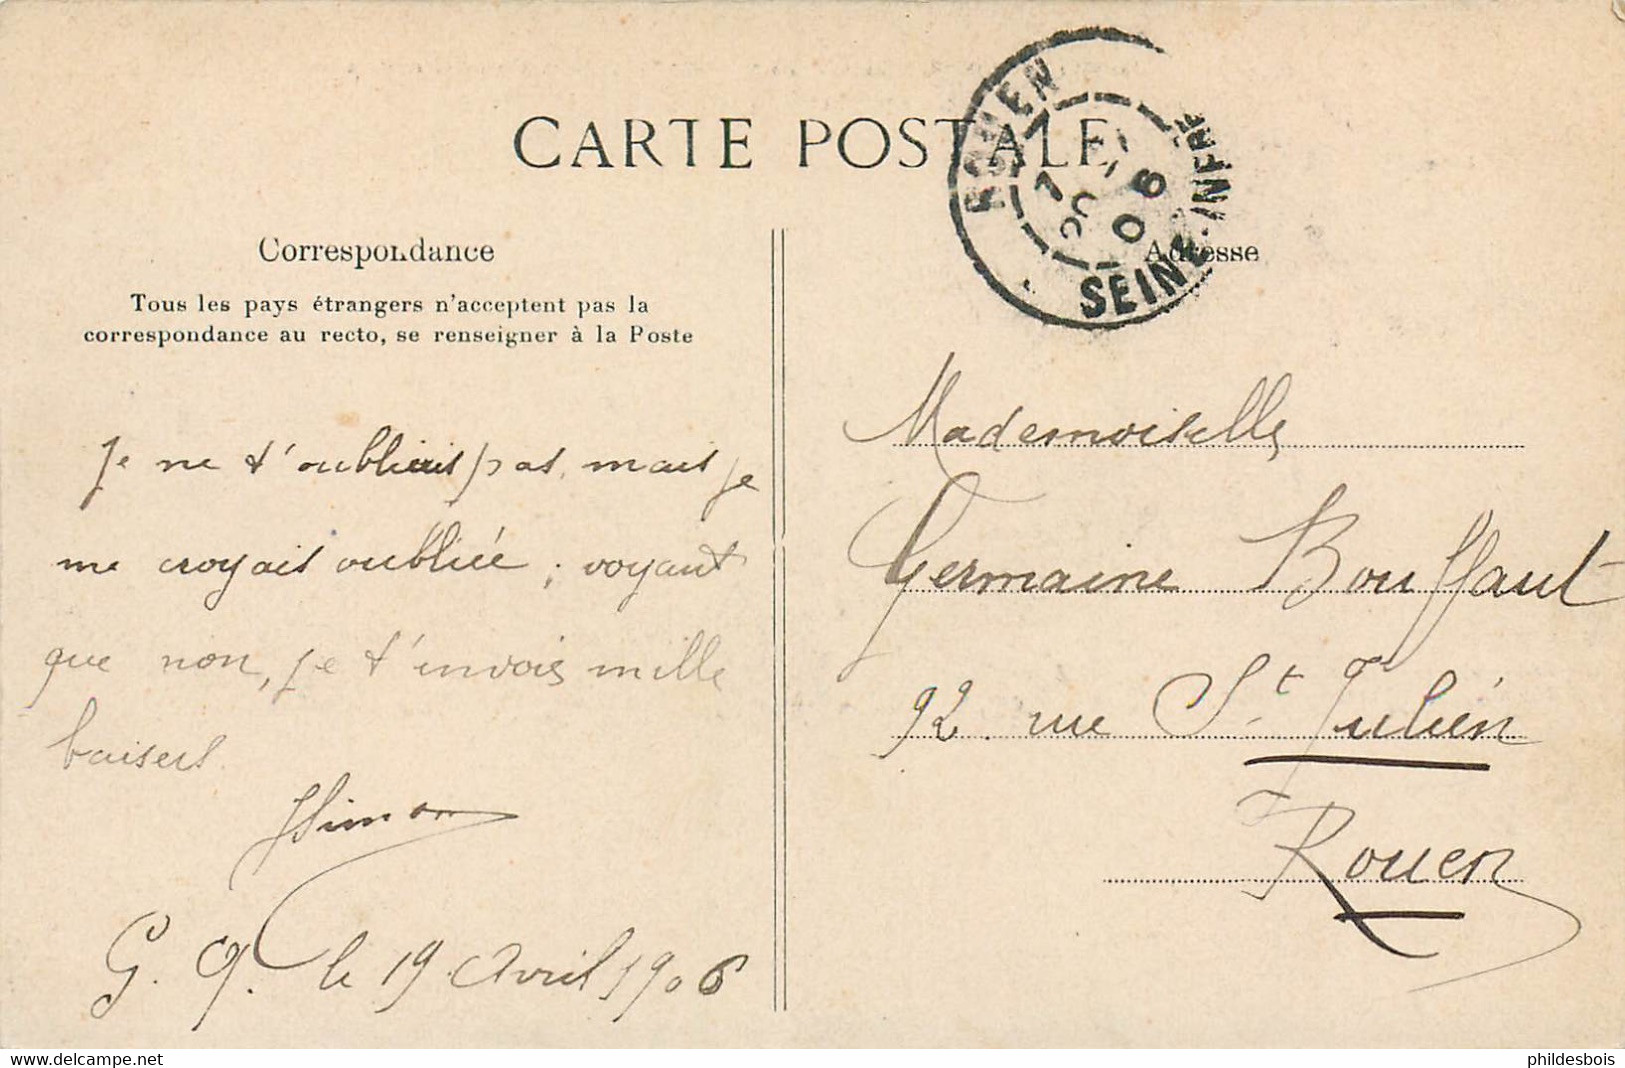 CARTE POSTALE
ROUEN
SEINE-INFRE
06
Correspondance
Tous les pays étrangers n'acceptent pas la
correspondance au recto, se renseigner à la Poste
Je ne t'oubliais pas, mais je
me croyais oubliée ; voyant
que non, je t'envois mille
baisers.
Simon
G. Q. le 19 Avril 1906
Adresse
Mademoiselle
Germaine Bouffaut
92 rue St Julien
Rouen
delcampe.net
phildesbois